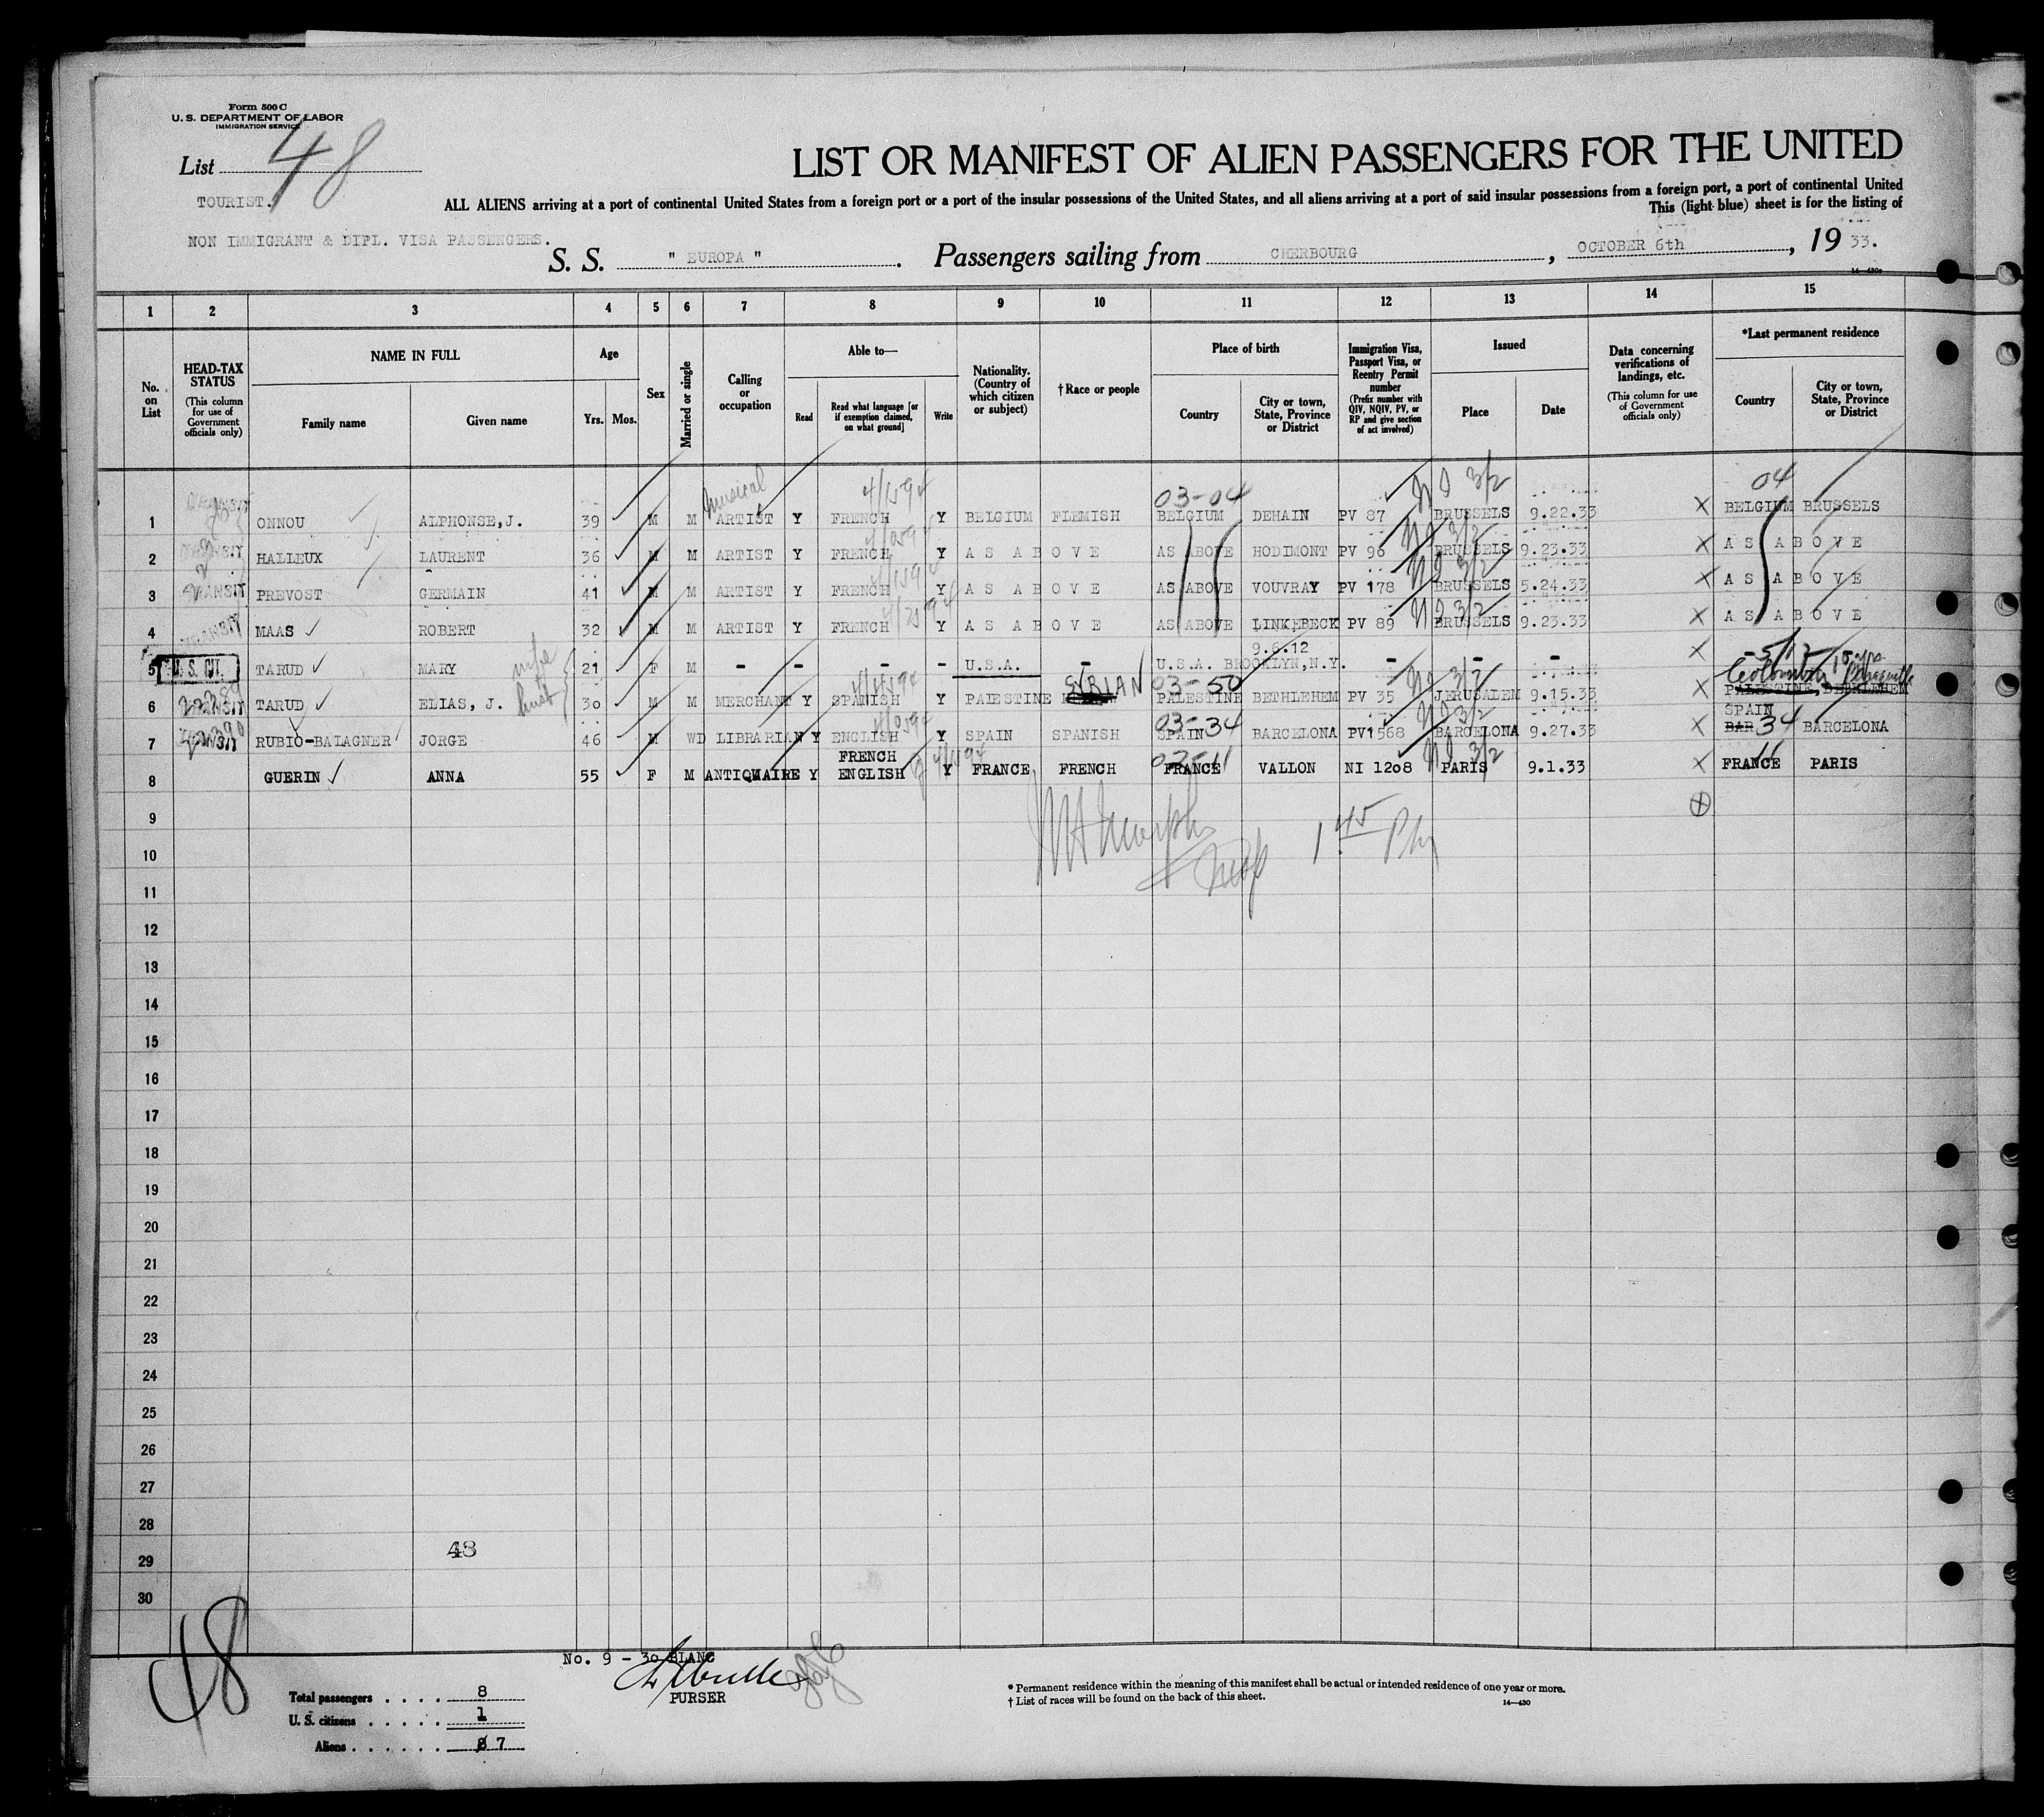 Form 500 C
U. S. DEPARTMENT OF LABOR
IMMIGRATION SERVICE
List 48
LIST OR MANIFEST OF ALIEN PASSENGERS FOR THE UNITED
TOURIST.
ALL ALIENS arriving at a port of continental United States from a foreign port or a port of the insular possessions of the United States, and all aliens arriving at a port of said insular possessions from a foreign port, a port of continental United
This (light blue) sheet is for the listing of
NON IMMIGRANT & DIPL. VISA PASSENGERS.
S. S. " EUROPA " . Passengers sailing from CHERBOURG , OCTOBER 6th , 19 33.
14—430
1 2 3 4 5 6 7 8 9 10 11 12 13 14 15
No. on List
HEAD-TAX STATUS (This column for use of Government officials only)
NAME IN FULL
Family name
Given name
Age
Yrs. Mos.
Sex
Married or single
Calling or occupation
Able to—
Read
Read what language [or if exemption claimed, on what ground]
Write
Nationality. (Country of which citizen or subject)
† Race or people
Place of birth
Country
City or town, State, Province or District
Immigration Visa, Passport Visa, or Reentry Permit number (Prefix number with QIV, NQIV, PV, or RP and give section of act involved)
Issued
Place
Date
Data concerning verifications of landings, etc. (This column for use of Government officials only)
*Last permanent residence
Country
City or town, State, Province or District
musical 03-04 NI 3/2 04
1 ONNOU ALPHONSE,J. 39 M M ARTIST Y FRENCH Y BELGIUM FLEMISH BELGIUM DEHAIN PV 87 BRUSSELS 9.22.33 X BELGIUM BRUSSELS
NI 3/2
2 TRANSIT HALLEUX LAURENT 36 M M ARTIST Y FRENCH Y AS ABOVE AS ABOVE HODIMONT PV 96 BRUSSELS 9.23.33 X AS ABOVE
NI 3/2
3 TRANSIT PREVOST GERMAIN 41 M M ARTIST Y FRENCH Y AS ABOVE AS ABOVE VOUVRAY PV 178 BRUSSELS 5.24.33 X AS ABOVE
NI 3/2
4 TRANSIT MAAS ROBERT 32 M M ARTIST Y FRENCH Y AS ABOVE AS ABOVE LINKEBECK PV 89 BRUSSELS 9.23.33 X AS ABOVE
9.6.12
5 U.S. CIT. TARUD MARY wife 21 F M - - - - U.S.A. - U.S.A. BROOKLYN,N.Y. - - - X
SYRIAN 03-50 NI 3/2 Colombia
6 TRANSIT TARUD ELIAS, J. husb 30 M M MERCHANT Y SPANISH Y PALESTINE PALESTINE BETHLEHEM PV 35 JERUSALEM 9.15.33 PALESTINE, BETHLEHEM
03-34 NI 3/2 SPAIN
7 TRANSIT RUBIO-BALAGNER JORGE 46 M WD LIBRARIAN Y ENGLISH Y SPAIN SPANISH SPAIN BARCELONA PV1568 BARCELONA 9.27.33 X BAR 34 BARCELONA
FRENCH 03-11 NI 3/2 11
8 GUERIN ANNA 55 F M ANTIQUAIRE Y ENGLISH Y FRANCE FRENCH FRANCE VALLON NI 1208 PARIS 9.1.33 X FRANCE PARIS
9
10 1 45 PM
11
12
13
14
15
16
17
18
19
20
21
22
23
24
25
26
27
28
29 48
30
48
No. 9 - 30 BLANC
PURSER
Total passengers . . . . 8
U. S. citizens . . . . . 1
Aliens . . . . . . 8 7
* Permanent residence within the meaning of this manifest shall be actual or intended residence of one year or more.
† List of races will be found on the back of this sheet.
14—430